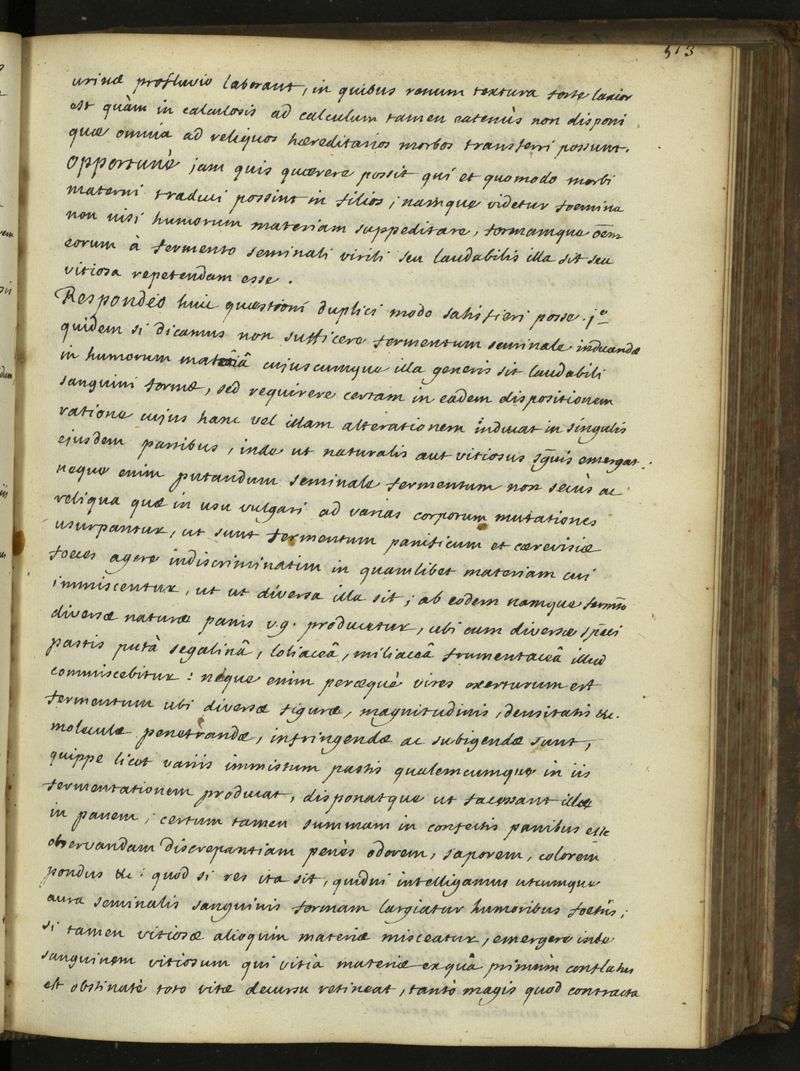 513
urinæ profluvio laborant, in quibus renum textura forte laxior
est quàm in calculosis ad calculum tamen eatenùs non disponi
quæ omnia ad reliquos hæreditarios morbos transferri possunt.
Opportunè jam quis quærere possit qui et quomodo morbi
materni traduci possint in filios; namque videtur foemina
non nisi humorum materiam suppeditare, formamque oēm
eorum à fermento seminali virili seu laudabilis illa sit seu
vitiosa repetendam esse.
Respondeo huic quæstioni duplici modo satisfieri posse. 1º
quidem si dicamus non sufficere fermentum seminale inducendæ
in humorum matēiâ cujuscumque illa generis sit laudabili
sanguini formæ, sed requirere certam in eadem dispositionem
ratione cujus hanc vel illam alterationem inducat in singulis
ejusdem partibus, inde ut naturalis aut vitiosus sguis emergat.
neque enim putandum seminale fermentum non secùs ac
reliqua quæ in usu vulgari ad varias corporum mutationes
usurpantur, ut sunt fermentum panificum et cærevisiæ
foeces agere indiscriminatim in quamlibet materiam cui
immiscentur, ut ut diversa illa sit; ab eodem namque fermto
diversæ naturæ panis v.g. producetur, ubi cum diversæ spēei
pastis putà segalinâ, loliaceâ, miliaceâ frumentaceâ illud
commiscebitur: neque enim peræquè vires exerturum est
fermentum ubi diversæ figuræ, magnitudinis, densitatis &c.
moleculæ penetrandæ, infringendæ ac subigendæ sunt,
quippe licet variis immistum pastis qualemcumque in iis
fermentationem producat, disponatque ut facessant illæ
in panem; certum tamen summam in confectis panibus esse
observandam discrepantiam penès odorem, saporem, colorem
pondus &c: quod si res ita sit, quidni intelligamus utcumque
aura seminalis sanguinis formam largiatur humoribus foetûs;
si tamen vitiosæ alioquin materiæ misceatur, emergere inde
sanguinem vitiosum qui vitia materiæ ex quâ primùm conflatus
est obstinatè toto vitæ decursu retineat, tantò magis quod contracta